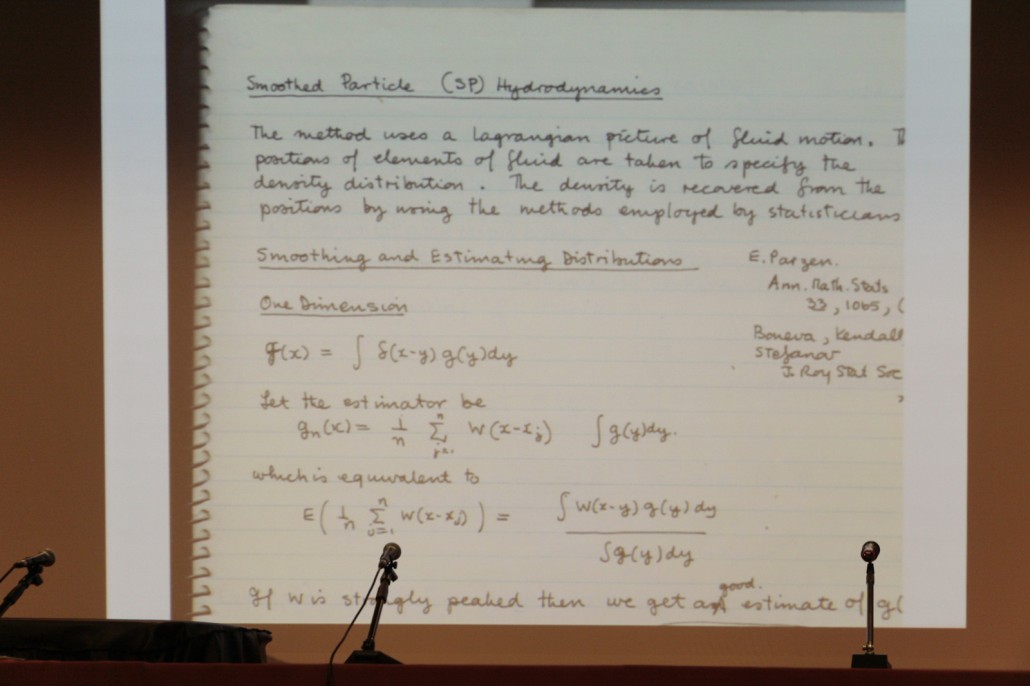 Smoothed Particle (SP) Hydrodynamics
The method uses a Lagrangian picture of fluid motion.
positions of elements of fluid are taken to specify the
density distribution. The density is recovered from the
positions by using the methods employed by statisticians
Smoothing and Estimating Distributions
E. Parzen.
Ann. Math. Stats
33, 1065, (
One Dimension
Boneva, Kendall
Stefanov
J. Roy Stat Soc
F(x) = ∫ δ(x-y) g(y)dy
Let the estimator be
gn(x) = 1/n Σ j=1 n W(x-xj) ∫ g(y)dy.
which is equivalent to
E( 1/n Σ j=1 n W(x-xj) ) = ∫ W(x-y) g(y) dy / ∫ g(y)dy
good.
If W is strongly peaked then we get a estimate of g(